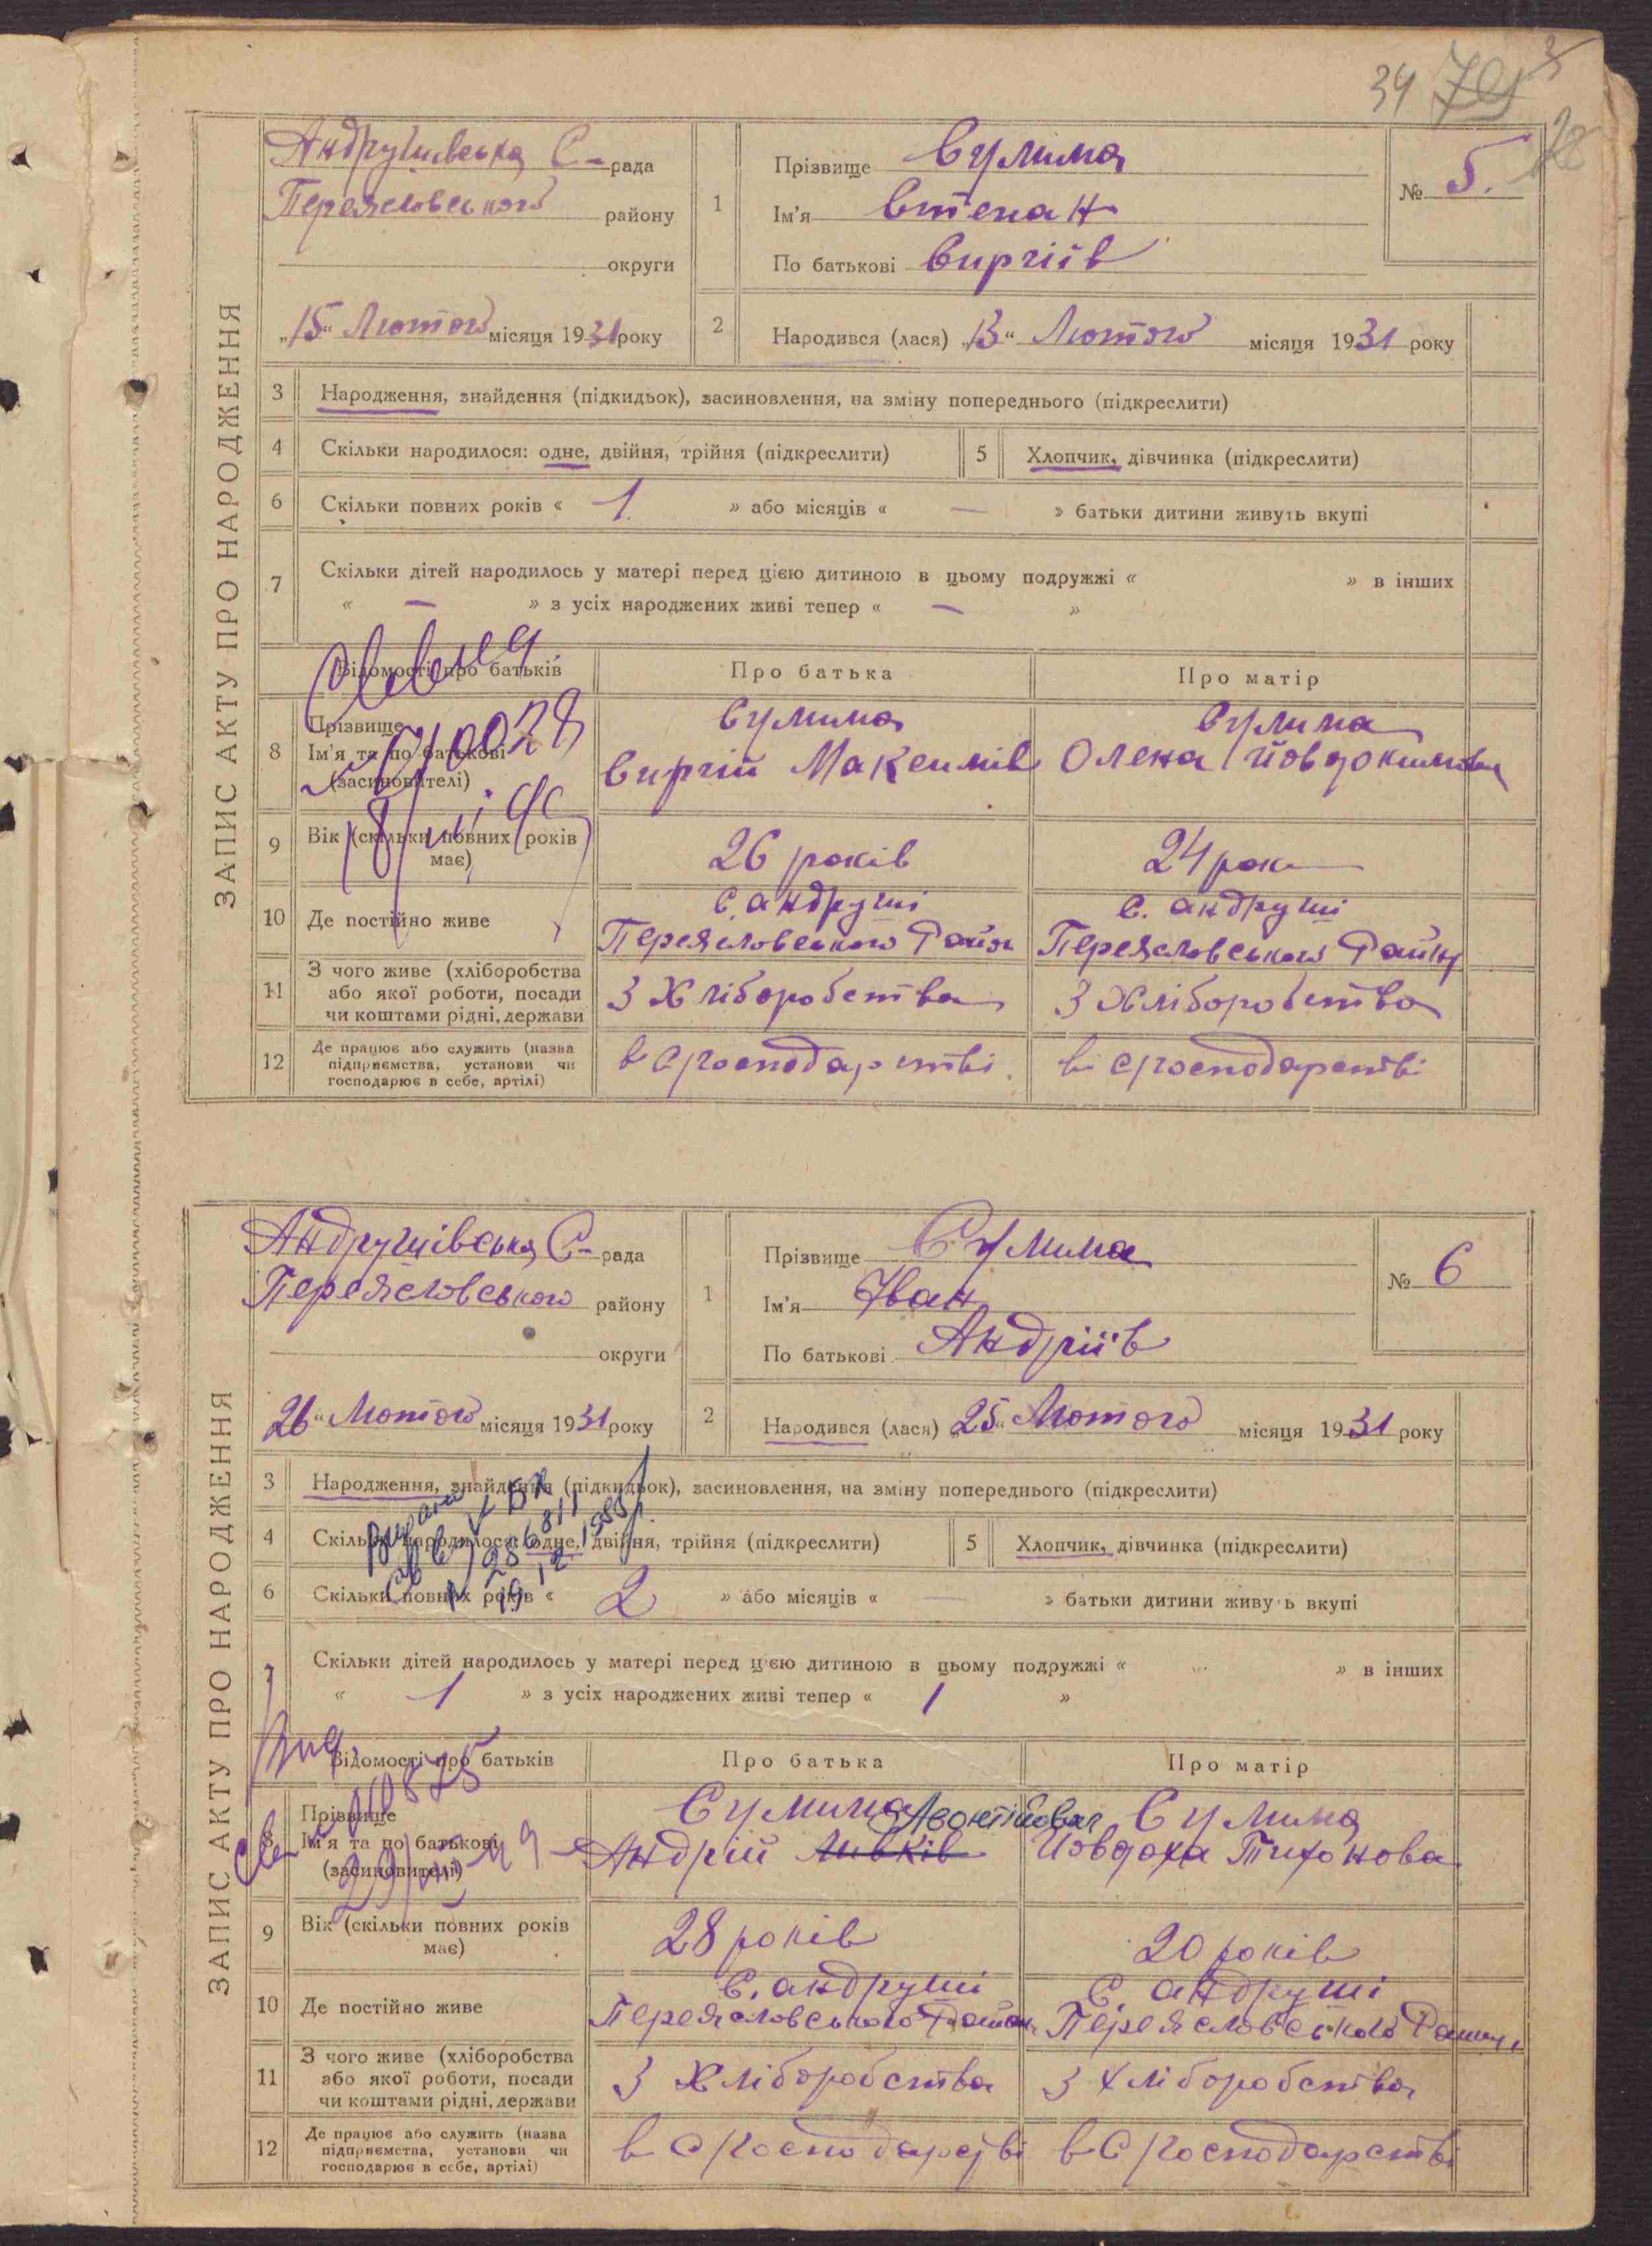 34
Андрушівська С-рада
Переясловського району
округи
„15“ Лютого місяця 1931 року
1
Прізвище Сулима
Ім'я Степан
По батькові Сиргіїв
№ 5.
2
Народився (лася) „13“ Лютого місяця 1931 року
ЗАПИС АКТУ ПРО НАРОДЖЕННЯ
3 Народження, знайдення (підкидьок), засиновлення, на зміну попереднього (підкреслити)
4 Скільки народилося: одне, двійня, трійня (підкреслити)
5 Хлопчик, дівчинка (підкреслити)
6 Скільки повних років « 1 » або місяців « — » батьки дитини живуть вкупі
7 Скільки дітей народилось у матері перед цією дитиною в цьому подружжі « » в інших
« — » з усіх народжених живі тепер « — »
Відомості про батьків
Про батька
Про матір
8 Прізвище
Ім'я та по батькові
(засиновителі)
Сулима
Сиргій Максимів
Сулима
Олена Йовдокимова
9 Вік (скільки повних років
має)
26 років
24 роки
10 Де постійно живе
С. андруші
Переясловського Район
С. андруші
Переясловського Району
11 З чого живе (хліборобства
або якої роботи, посади
чи коштами рідні, держави
З Хліборобства
З Хліборобства
12 Де працює або служить (назва
підприємства, установи чи
господарює в себе, артілі)
в С/господарстві
в С/господарстві
Андрушівська С-рада
Переясловського району
округи
26“ Лютого місяця 1931 року
1
Прізвище Сулима
Ім'я Іван
По батькові Андріїв
№ 6
2
Народився (лася) „25“ Лютого місяця 1931 року
ЗАПИС АКТУ ПРО НАРОДЖЕННЯ
3 Народження, знайдення (підкидьок), засиновлення, на зміну попереднього (підкреслити)
4 Скільки народилося: одне, двійня, трійня (підкреслити)
5 Хлопчик, дівчинка (підкреслити)
6 Скільки повних років « 2 » або місяців « — » батьки дитини живуть вкупі
7 Скільки дітей народилось у матері перед цією дитиною в цьому подружжі « » в інших
« 1 » з усіх народжених живі тепер « 1 »
Відомості про батьків
Про батька
Про матір
8 Прізвище
Ім'я та по батькові
(засиновителі)
Сулима
Андрій Левків Леонтійович
Сулима
Йовдоха Тихонова
9 Вік (скільки повних років
має)
28 років
20 років
10 Де постійно живе
С. андруші
Переясловського Район
С. андруші
Переясловського Району
11 З чого живе (хліборобства
або якої роботи, посади
чи коштами рідні, держави
З Хліборобства
З Хліборобства
12 Де працює або служить (назва
підприємства, установи чи
господарює в себе, артілі)
в С/господарстві
в С/господарстві